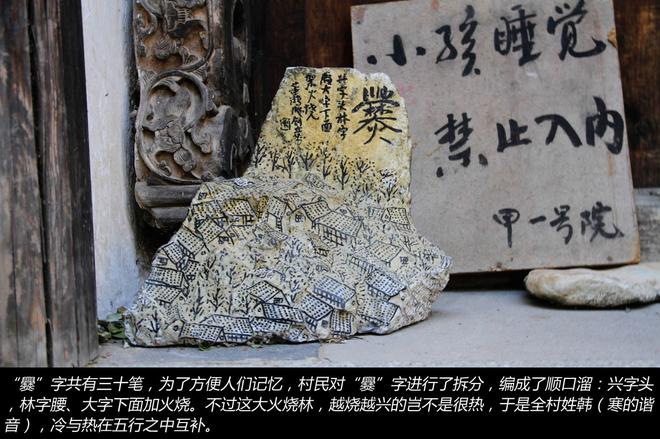 爨
兴字头林字
腰大字下面
小孩睡觉
禁止入内
甲一号院
“爨”字共有三十笔，为了方便人们记忆，村民对“爨”字进行了拆分，编成了顺口溜：兴字头
，林字腰、大字下面加火烧。不过这大火烧林，越烧越兴的岂不是很热，于是全村姓韩（寒的谐
音），冷与热在五行之中互补。